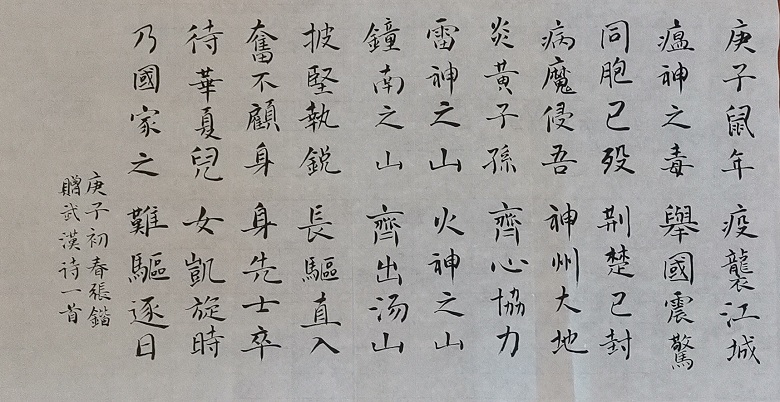 庚子鼠年疫襲江城
瘟神之毒舉國震驚
同胞已殁荆楚已封
病魔侵吾神州大地
炎黃子孫齊心協力
雷神之山火神之山
鐘南之山齊出汤山
披堅執鋭長驅直入
奮不顧身身先士卒
待華夏兒女凱旋時
乃國家之難驅逐日
庚子初春張鍇
贈武漢诗一首